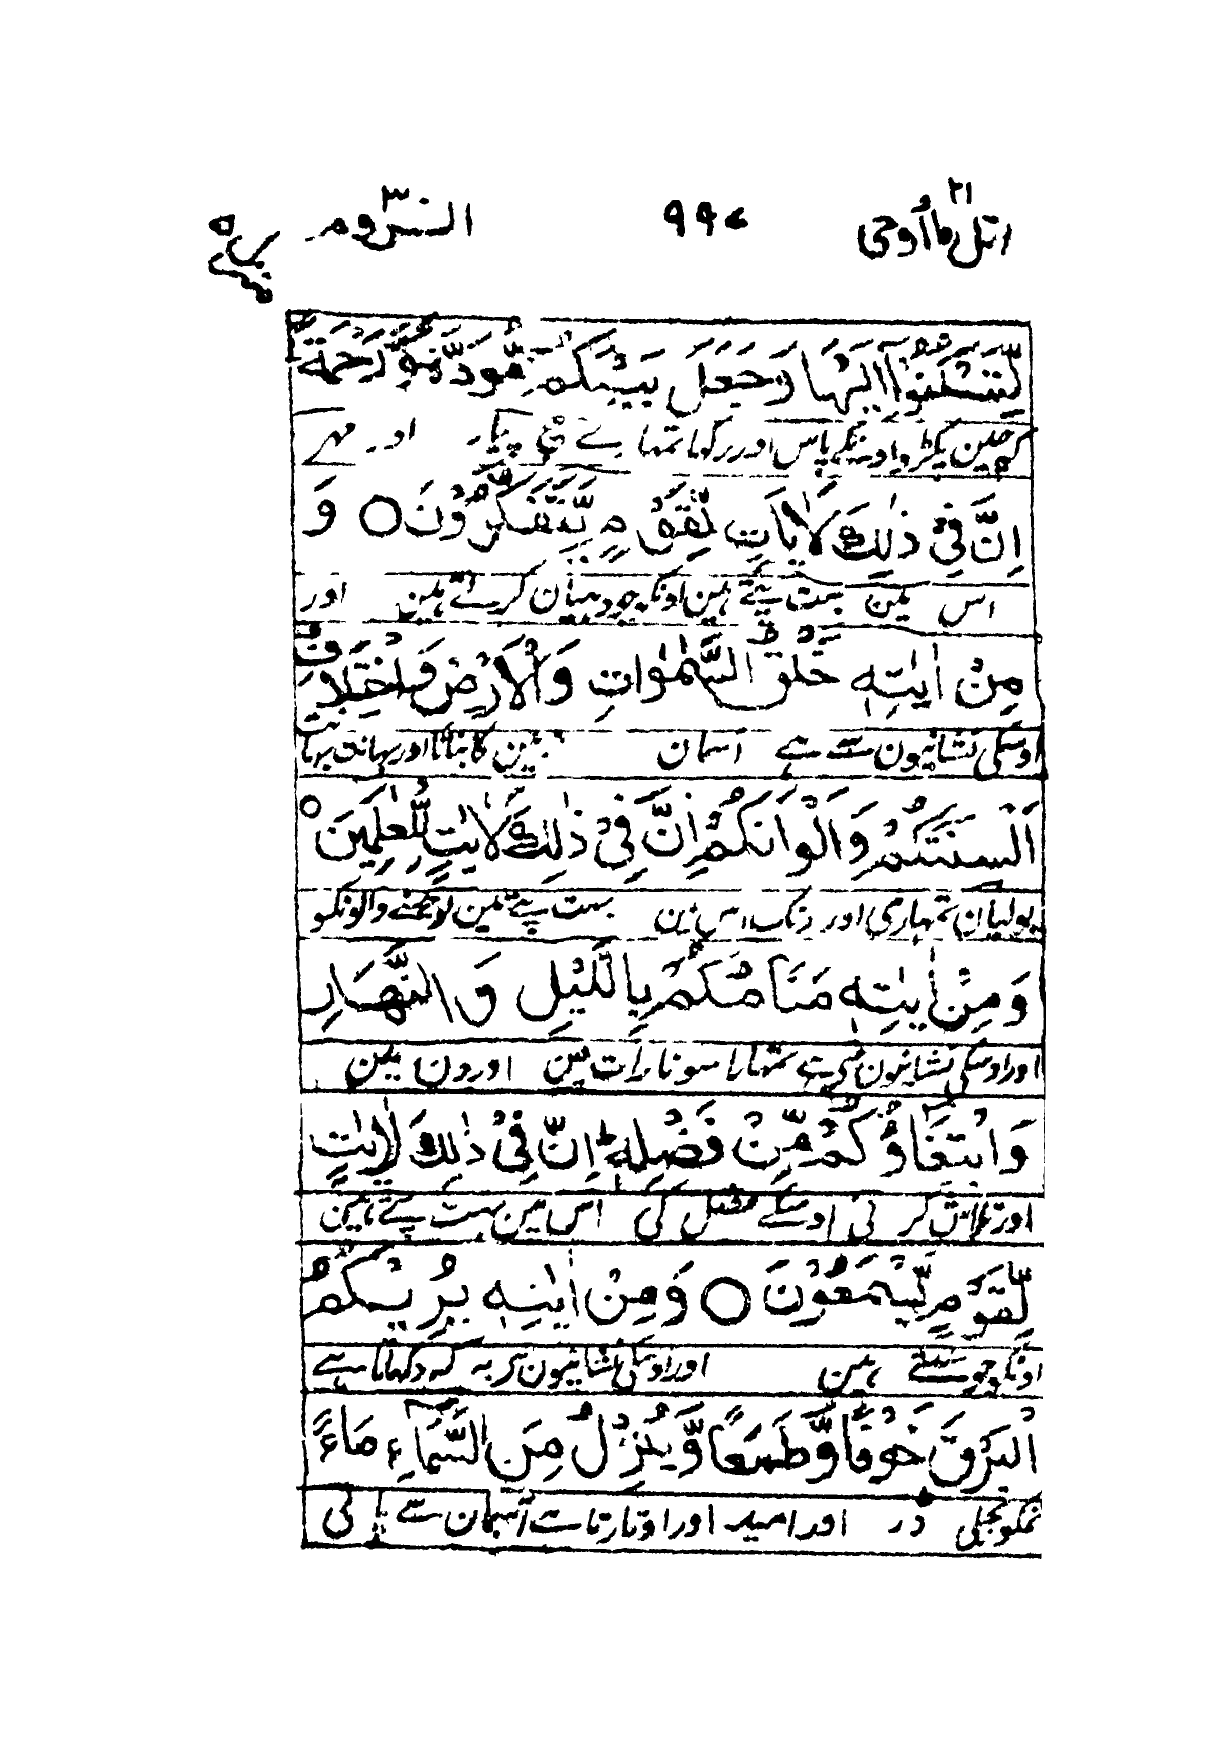 اتل ما أوحی ۲۱ ۹۹۷ الروم ۳۰
لِّتَسْكُنُوٓا اِلَيْهَا وَجَعَلَ بَيْنَكُمْ مَّوَدَّةً وَّرَحْمَةً
کہ چین پکڑو اونکے پاس اور رکھا تمہارے بیچ پیار اور مہر
اِنَّ فِیْ ذٰلِكَ لَاٰيَاتٍ لِّقَوْمٍ يَّتَفَكَّرُوْنَ ○ وَ
اس مین بہت پتے ہین اونکو جو دہیان کرتے ہین اور
مِنْ اٰيٰتِهٖ خَلْقُ السَّمٰوٰتِ وَالْاَرْضِ وَاخْتِلَافُ
اوسکی نشانیون سے ہے آسمان زمین کا بنانا اور بہانت بہانت
اَلْسِنَتِكُمْ وَاَلْوَانِكُمْ اِنَّ فِیْ ذٰلِكَ لَاٰيٰتٍ لِّلْعٰلِمِيْنَ ○
بولیان تمہاری اور رنگ اس مین بہت پتے ہین بوجھنے والونکو
وَ مِنْ اٰيٰتِهٖ مَنَامُكُمْ بِالَّيْلِ وَ النَّهَارِ
اور اوسکی نشانیون سے ہے تمہارا سونا رات مین اور دن مین
وَ ابْتِغَاؤُكُمْ مِّنْ فَضْلِهٖ ط اِنَّ فِیْ ذٰلِكَ لَاٰيٰتٍ
اور تلاش کرنی اوسکے فضل کی اس مین بہت پتے ہین
لِّقَوْمٍ يَّسْمَعُوْنَ ○ وَ مِنْ اٰيٰتِهٖ يُرِيْكُمُ
اونکو جو سنتے ہین اور اوسکی نشانیون یہ کہ دکھاتا ہے
الْبَرْقَ خَوْفًا وَّ طَمَعًا وَّ يُنَزِّلُ مِنَ السَّمَآءِ مَآءً
تمکو بجلی ڈر اور امید اور اوتارتا ہے آسمان سے پانی